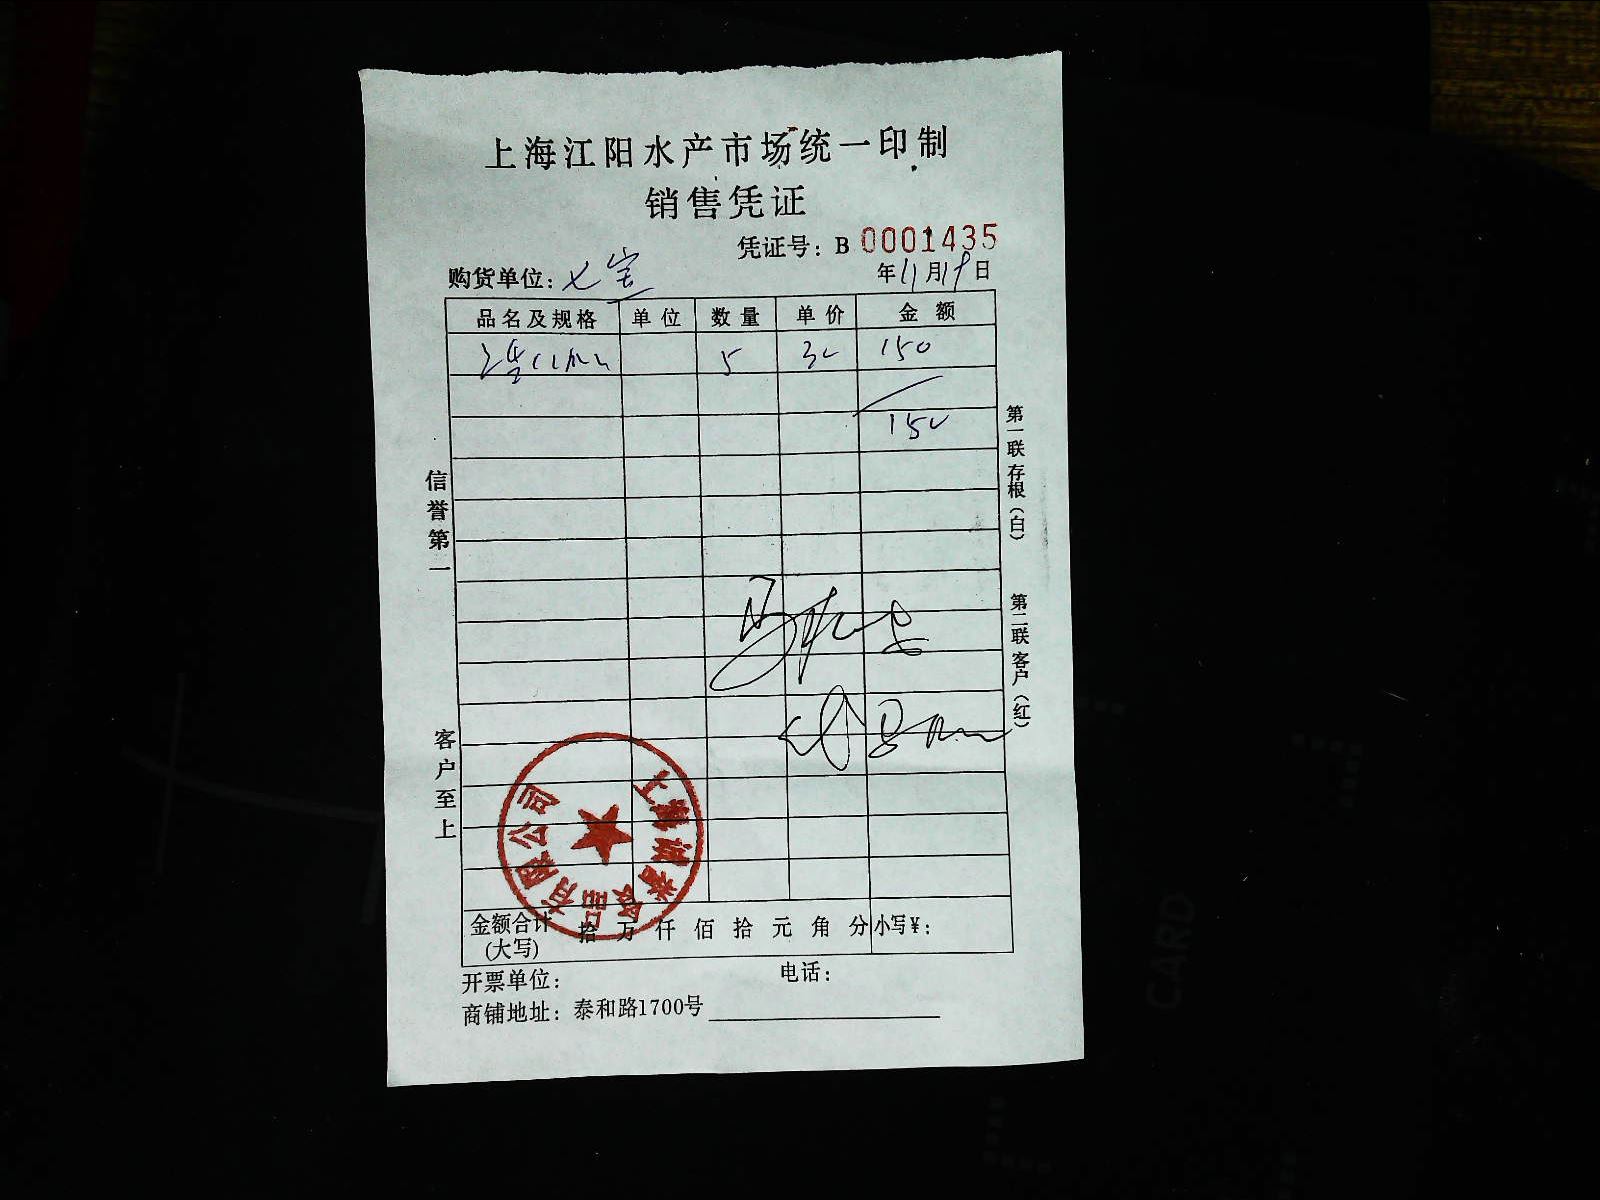 上海江阳水产市场统一印制
销售凭证
凭证号：B 0001435
购货单位：七宝 年11月19日
品名及规格 单位 数量 单价 金额
5 30 150
150
信誉第一
客户至上
第一联存根（白）
第二联客户（红）
食品有限公司
金额合计(大写) 拾 万 仟 佰 拾 元 角 分 小写￥：
开票单位： 电话：
商铺地址：泰和路1700号